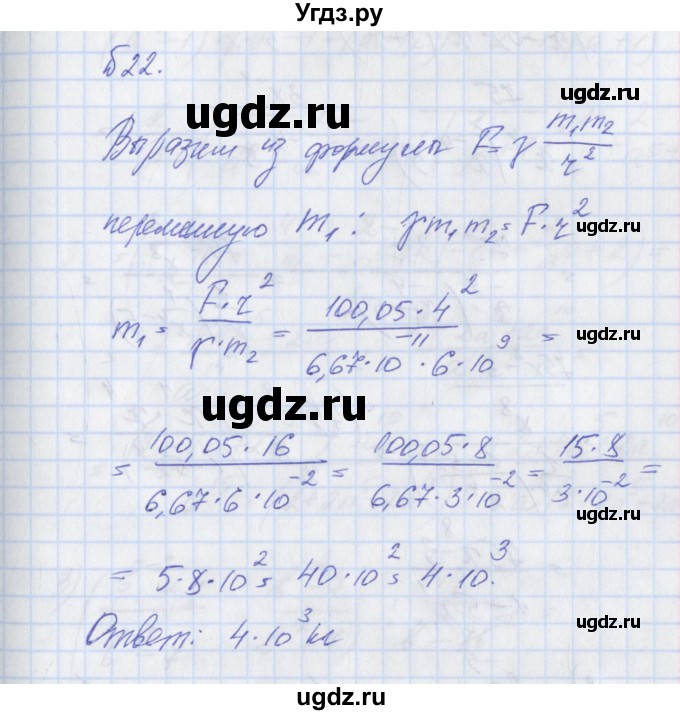 Угдз.ру
Б22.
ugdz.ru
Выразим из формулы F = γ m₁m₂ / r²
ugdz.ru
переменную m₁: γm₁m₂ = F·r²
ugdz.ru
m₁ = F·r² / γ·m₂ = 100,05·4² / 6,67·10⁻¹¹·6·10⁹ =
ugdz.ru
ugdz.ru
= 100,05·16 / 6,67·6·10⁻² = 100,05·8 / 6,67·3·10⁻² = 15·8 / 3·10⁻² =
ugdz.ru
= 5·8·10² = 40·10² = 4·10³.
Ответ: 4·10³ кг
ugdz.ru
ugdz.ru